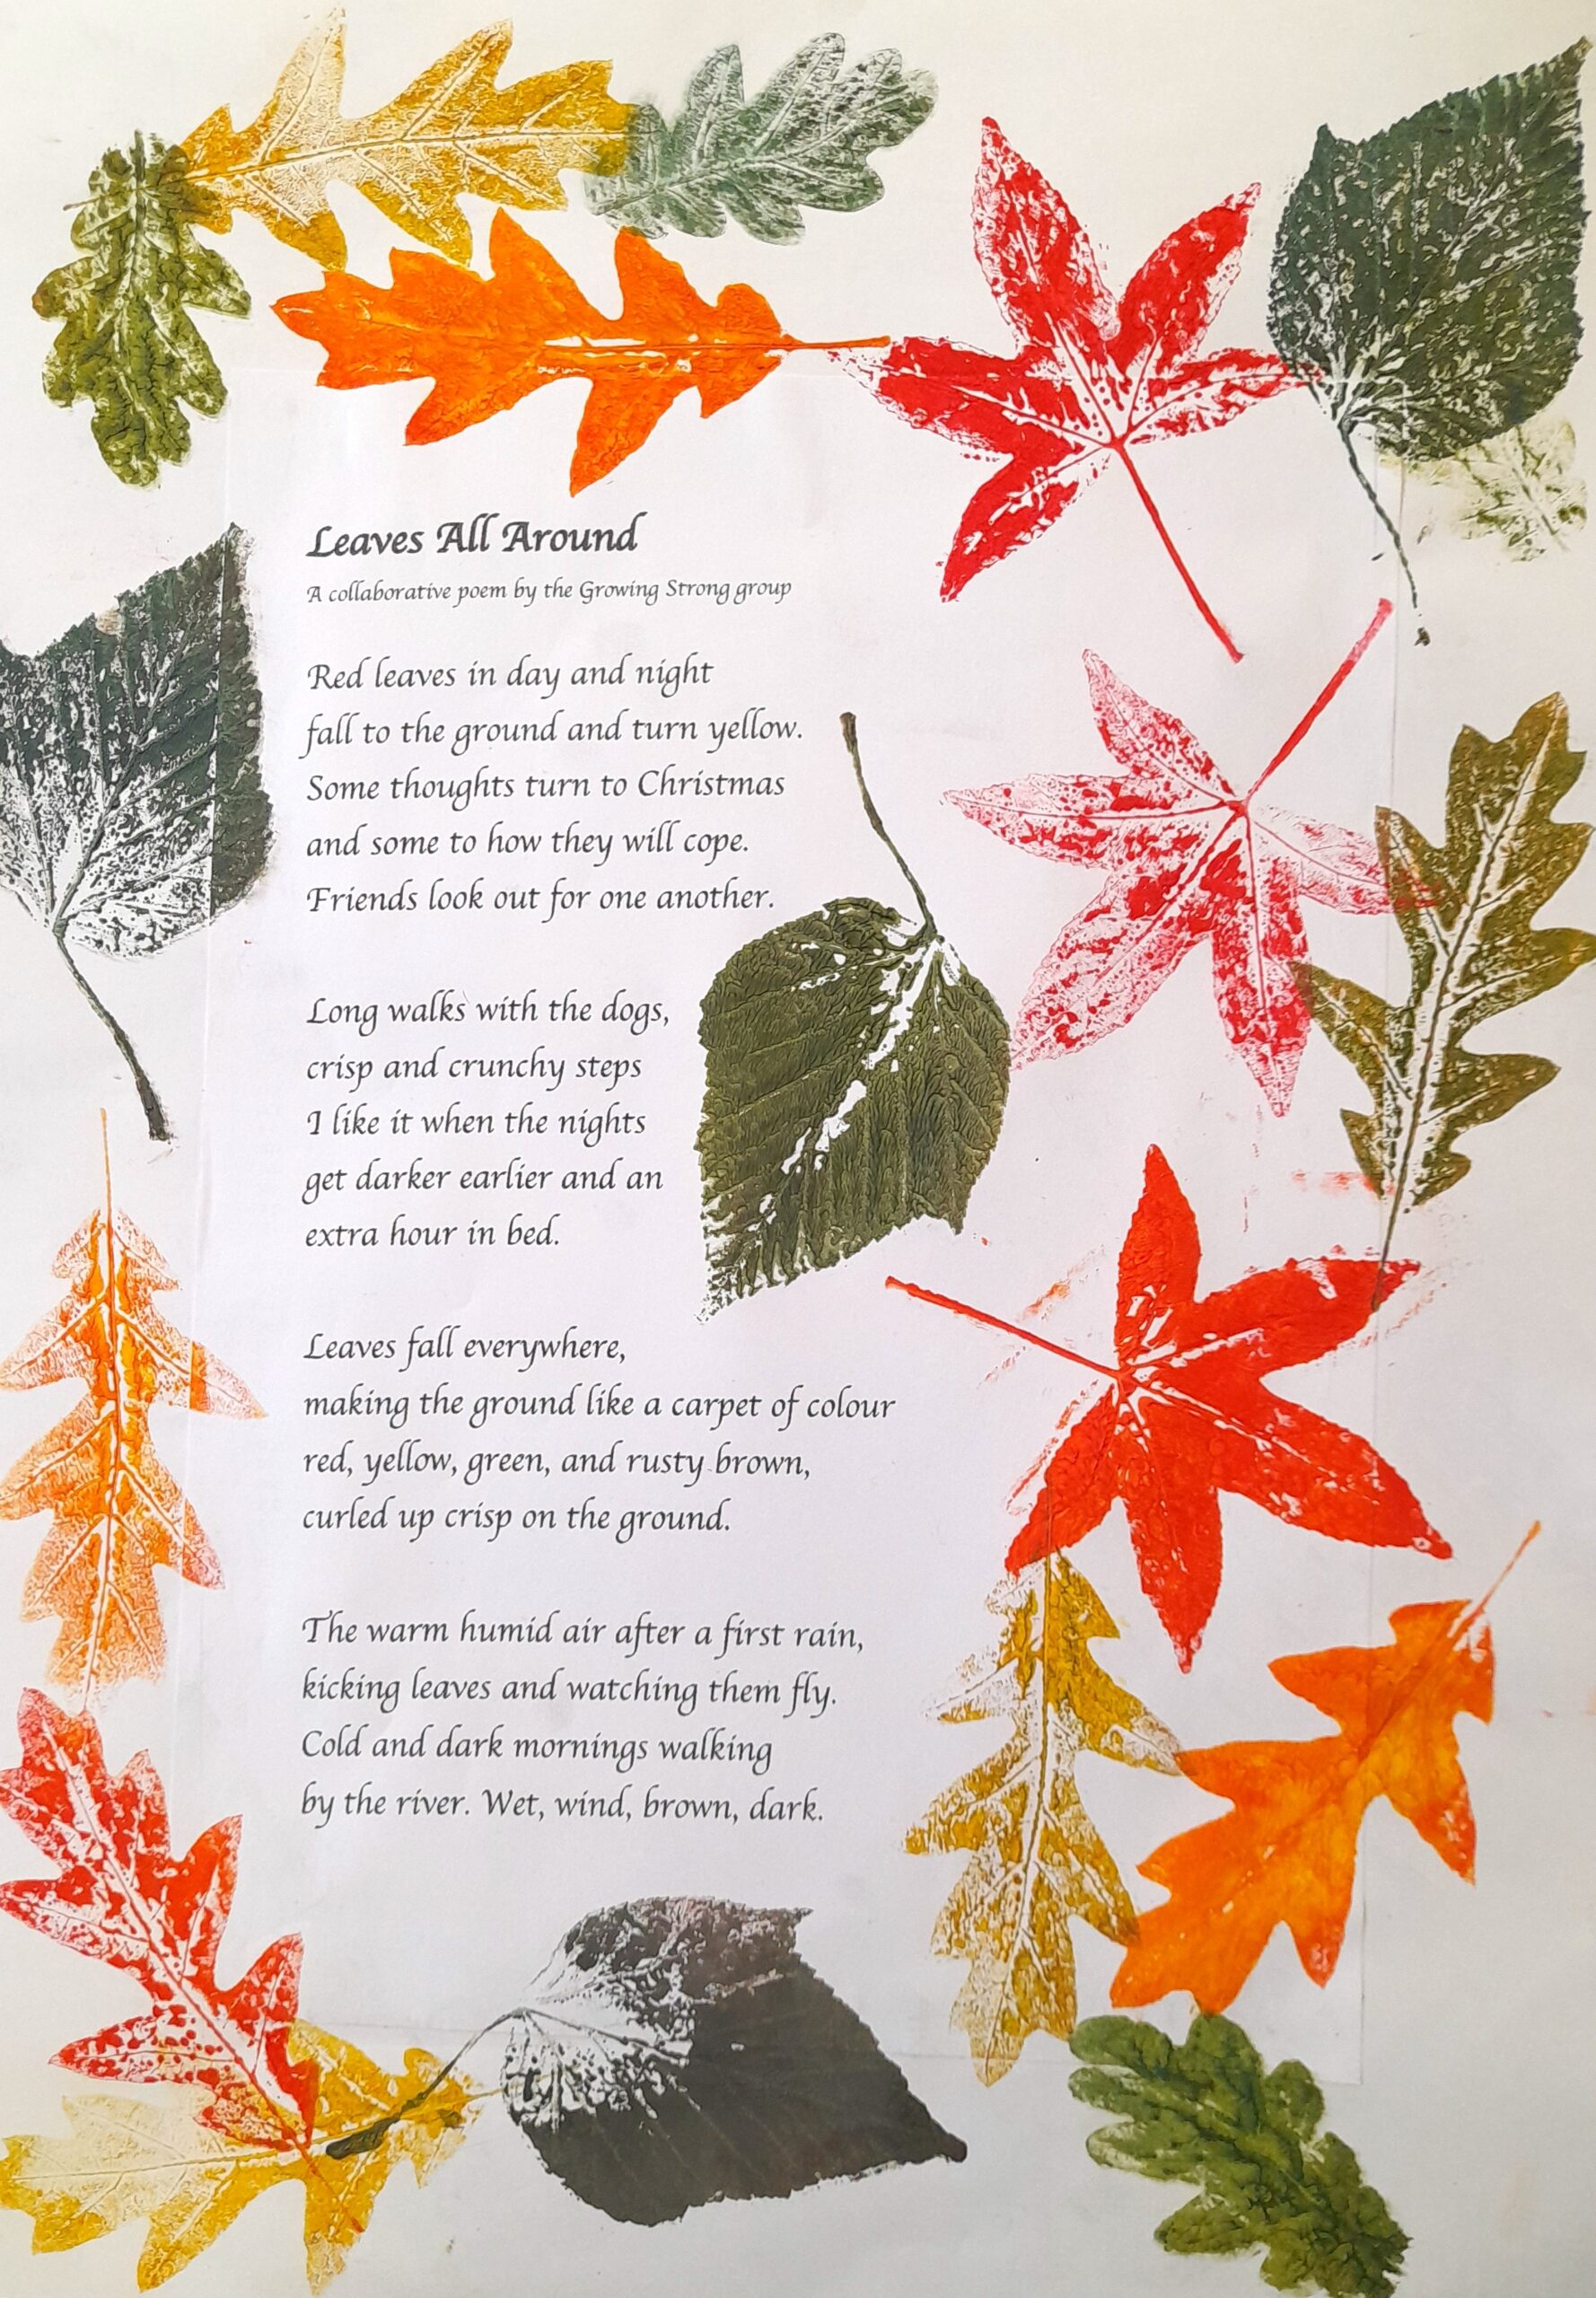 Leaves All Around
A collaborative poem by the Growing Strong group
Red leaves in day and night
fall to the ground and turn yellow.
Some thoughts turn to Christmas
and some to how they will cope.
Friends look out for one another.
Long walks with the dogs,
crisp and crunchy steps
I like it when the nights
get darker earlier and an
extra hour in bed.
Leaves fall everywhere,
making the ground like a carpet of colour
red, yellow, green, and rusty brown,
curled up crisp on the ground.
The warm humid air after a first rain,
kicking leaves and watching them fly.
Cold and dark mornings walking
by the river. Wet, wind, brown, dark.